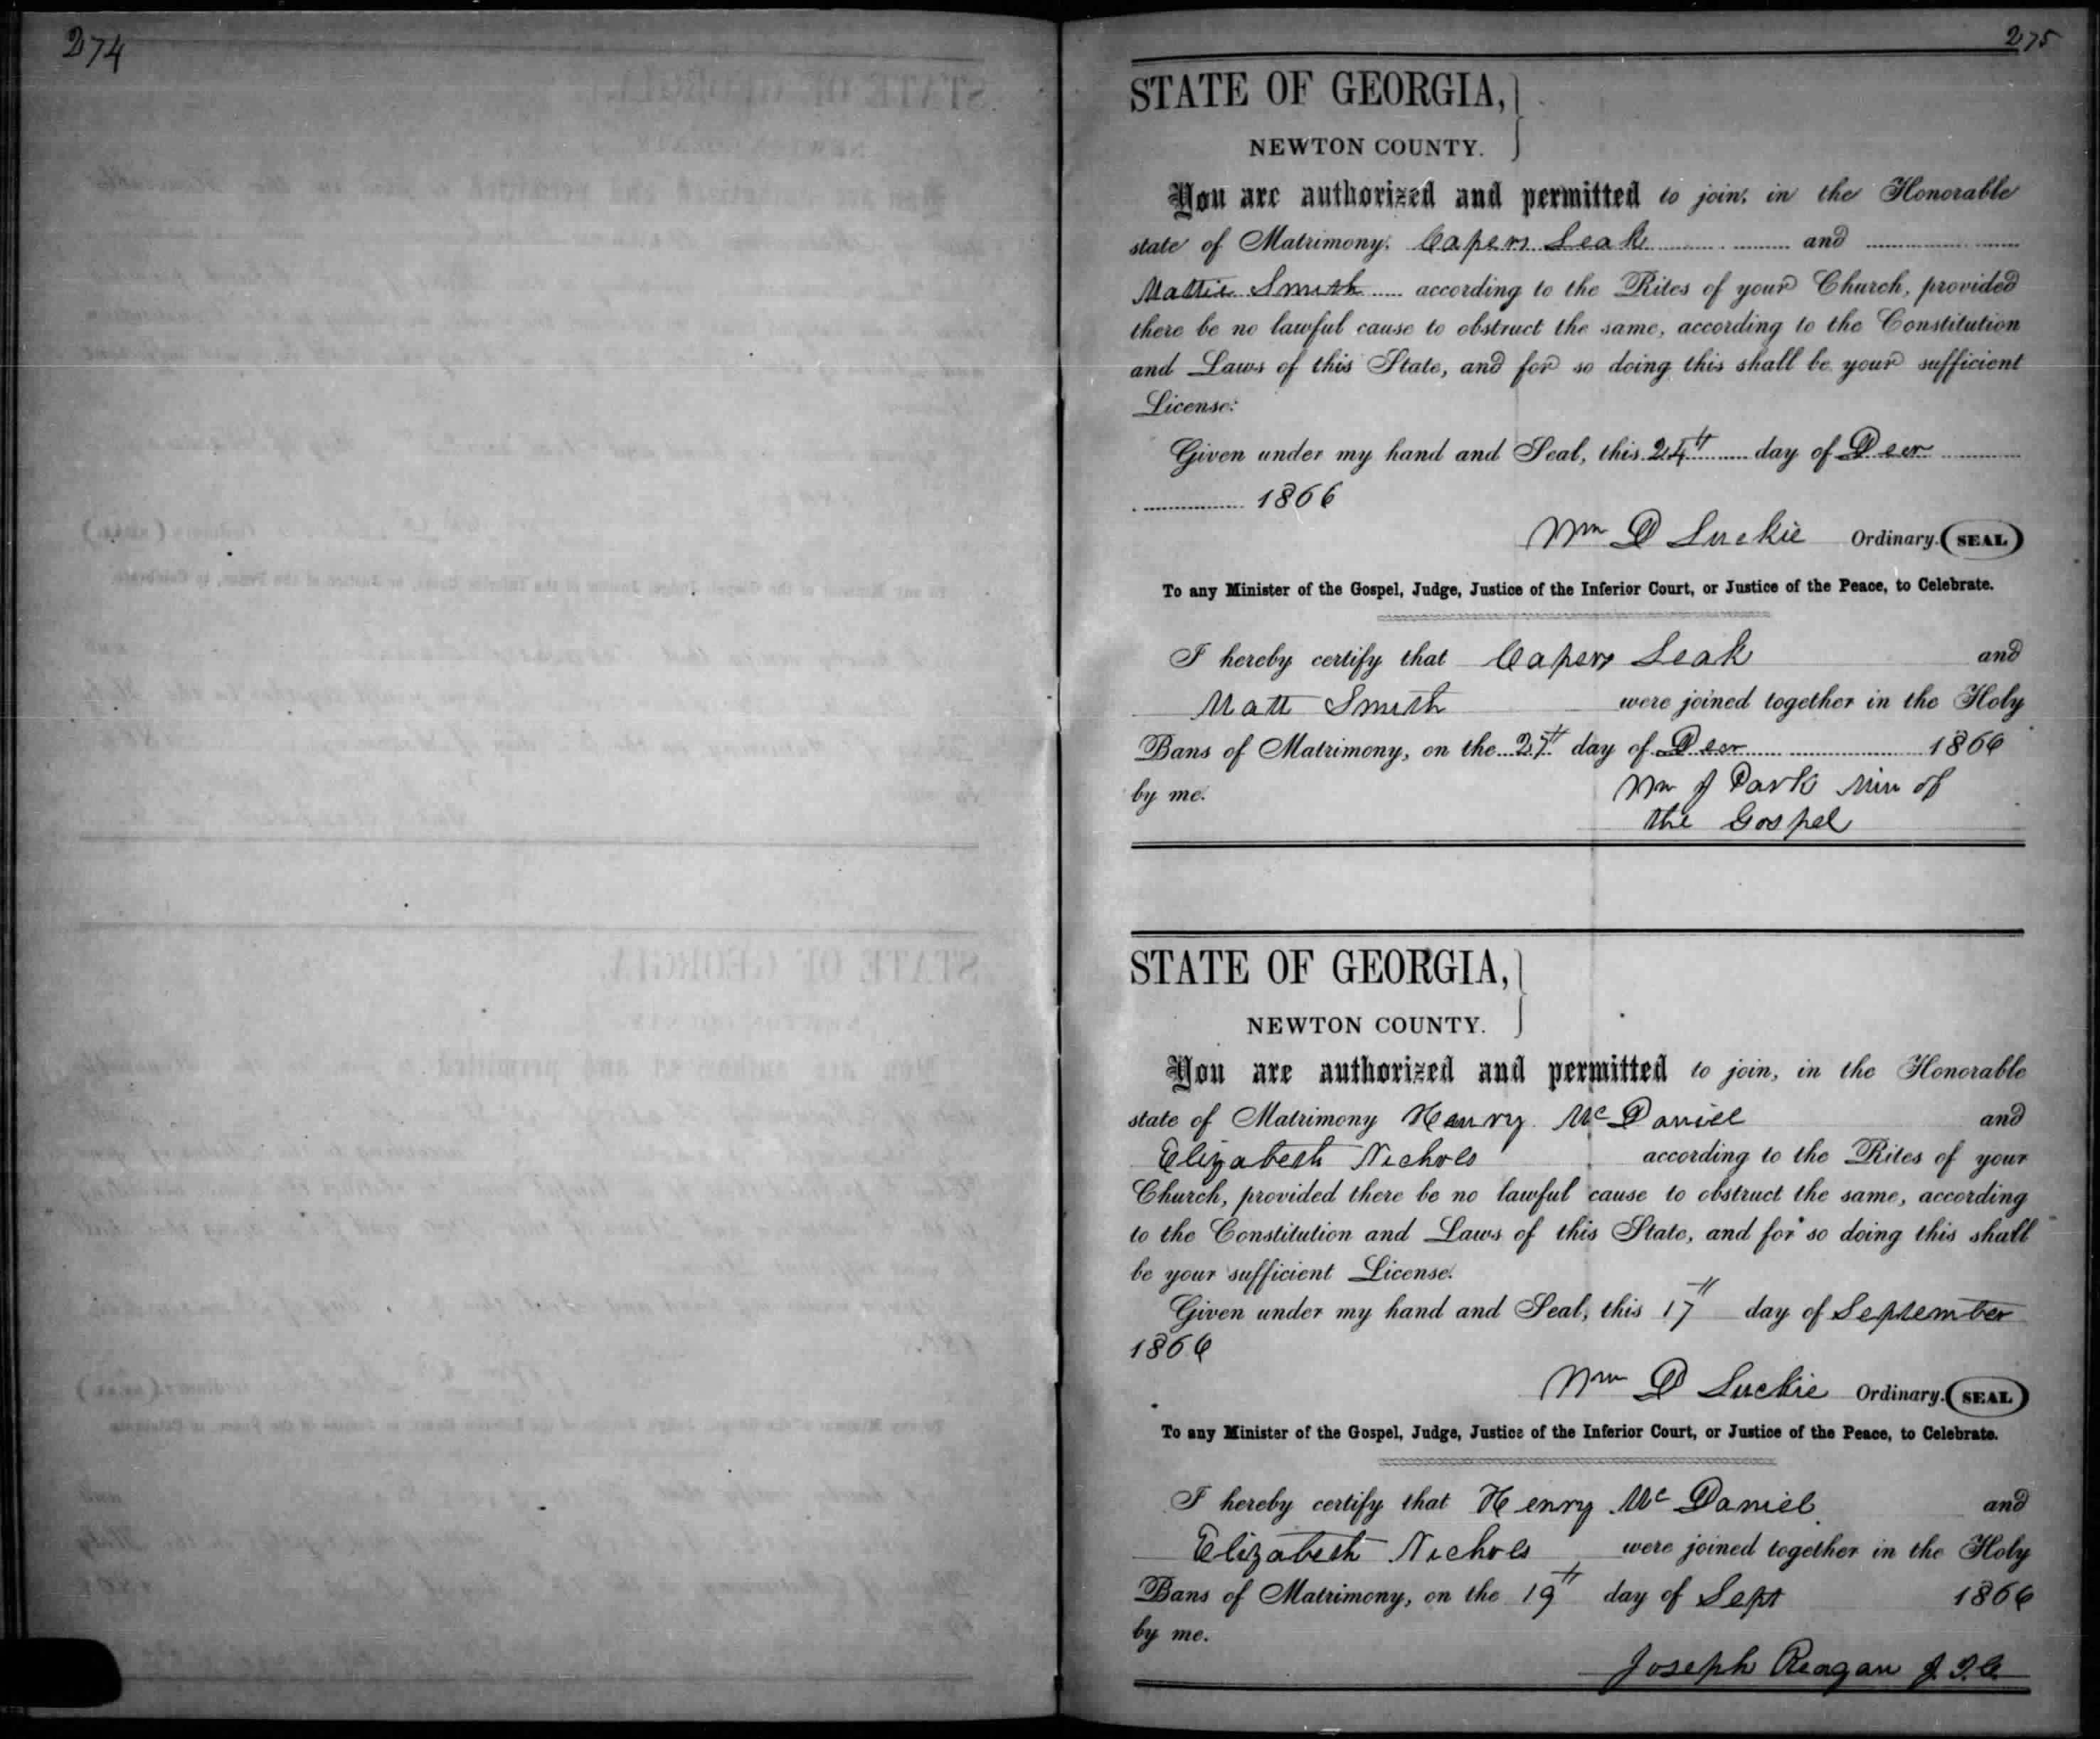 274
275
STATE OF GEORGIA,
NEWTON COUNTY.
You are authorized and permitted to join, in the Honorable
state of Matrimony, Capers Leak and
Mattie Smith according to the Rites of your Church, provided
there be no lawful cause to obstruct the same, according to the Constitution
and Laws of this State, and for so doing this shall be your sufficient
License.
Given under my hand and Seal, this 24th day of Decr
1866
Wm D Luckie Ordinary. (SEAL)
To any Minister of the Gospel, Judge, Justice of the Inferior Court, or Justice of the Peace, to Celebrate.
I hereby certify that Capers Leak and
Matt Smith were joined together in the Holy
Bans of Matrimony, on the 27th day of Decr 1866
by me. Wm J Park Min of
the Gospel
STATE OF GEORGIA,
NEWTON COUNTY.
You are authorized and permitted to join, in the Honorable
state of Matrimony Henry McDaniel and
Elizabeth Nichols according to the Rites of your
Church, provided there be no lawful cause to obstruct the same, according
to the Constitution and Laws of this State, and for so doing this shall
be your sufficient License.
Given under my hand and Seal, this 17th day of September
1866
Wm D Luckie Ordinary. (SEAL)
To any Minister of the Gospel, Judge, Justice of the Inferior Court, or Justice of the Peace, to Celebrate.
I hereby certify that Henry McDaniel and
Elizabeth Nichols were joined together in the Holy
Bans of Matrimony, on the 19th day of Sept 1866
by me.
Joseph Reagan J.I.C.